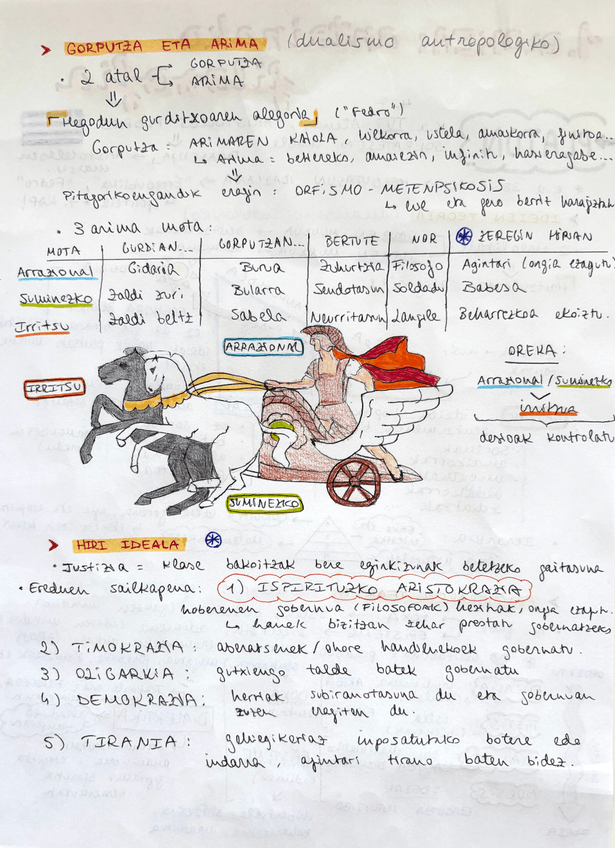 > GORPUTZA ETA ARIMA (dualismo antropologiko)
· 2 atal GORPUTZA
ARIMA
⇓
"Hegodun gurditxoaren alegoria" ("Fedro")
Gorputza = ARIMAREN KAIOLA, hilkorra, ustela, amaikorra, finitoa...
↳ Arima = betiereko, amaiezin, infinitu, hasieragabe...
⇓
Pitagorikoengandik eragin: ORFISMO - METENPSIKOSIS
↳ hil eta gero berriz
· 3 arima mota:
MOTA | GURDIAN... | GORPUTZAN... | BERTUTE | NOR | ZEREGIN HIRIAN
Arrazional | Gidaria | Burua | Zuhurtzia | Filosofo | Agintari (ongia ezagutu
Suminezko | Zaldi zuri | Bularra | Sendotasun | Soldadu | Babesa
Irritsu | Zaldi beltz | Sabela | Neurritasun | Langile | Beharrezkoa ekoiztu.
ARRAZIONAL
OREKA:
IRRITSU
Arrazional/Suminezko
irritsua
desioak kontrolatu
SUMINEZKO
> HIRI IDEALA
· Justizia = klase bakoitzak bere eginkizunak betetzeko gaitasuna
· Ereduen sailkapena: 1) ISPIRITUZKO ARISTOKRAZIA
hoberenen gobernua (FILOSOFOAK) heziak, ongia
↳ hauek bizitzan zehar prestatu gobernatzeko
2) TIMOKRAZIA: aberatsenek / ohore handienekoek gobernatu.
3) OLIGARKIA: gutxiengo talde batek gobernatu
4) DEMOKRAZIA: herriak subiranotasuna du eta gobernuan
zuzen eragiten du.
5) TIRANIA: gehiegikeriaz inposatutako botere edo
indarra, agintari tirano baten bidez.